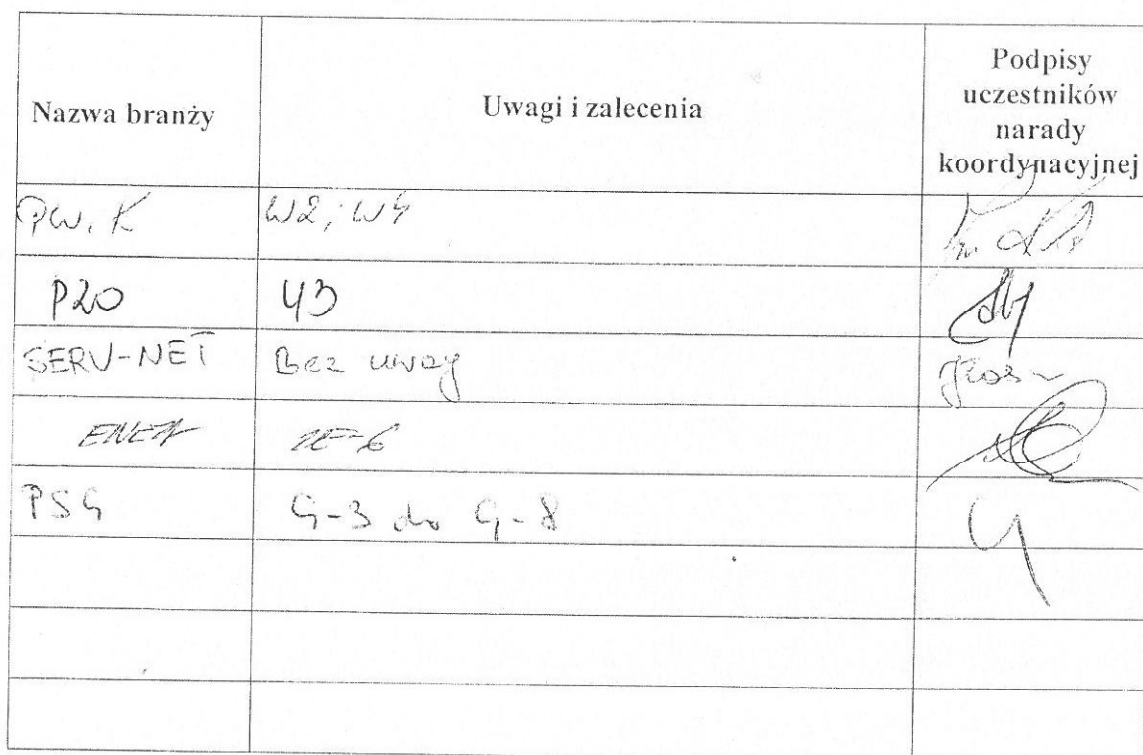 Nazwa branży
Uwagi i zalecenia
Podpisy
uczestników
narady
koordynacyjnej
PW.K W2; W4
P20 43
SERV-NET Bez uwag
ENEA ZE-6
PSG G-3 do G-8